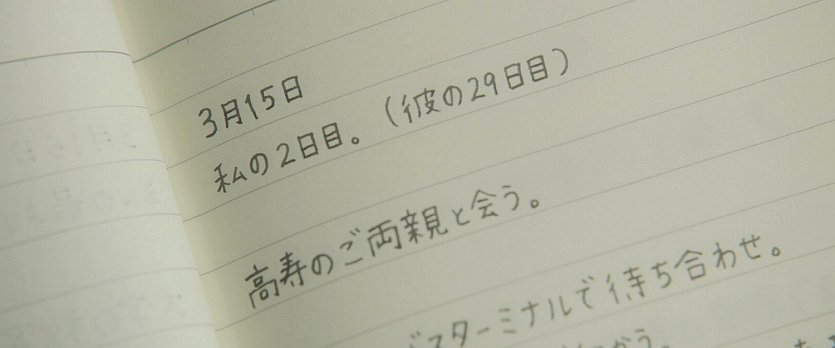 3月15日
私の2日目。(彼の29日目)
高寿のご両親と会う。
バスターミナルで待ち合わせ。